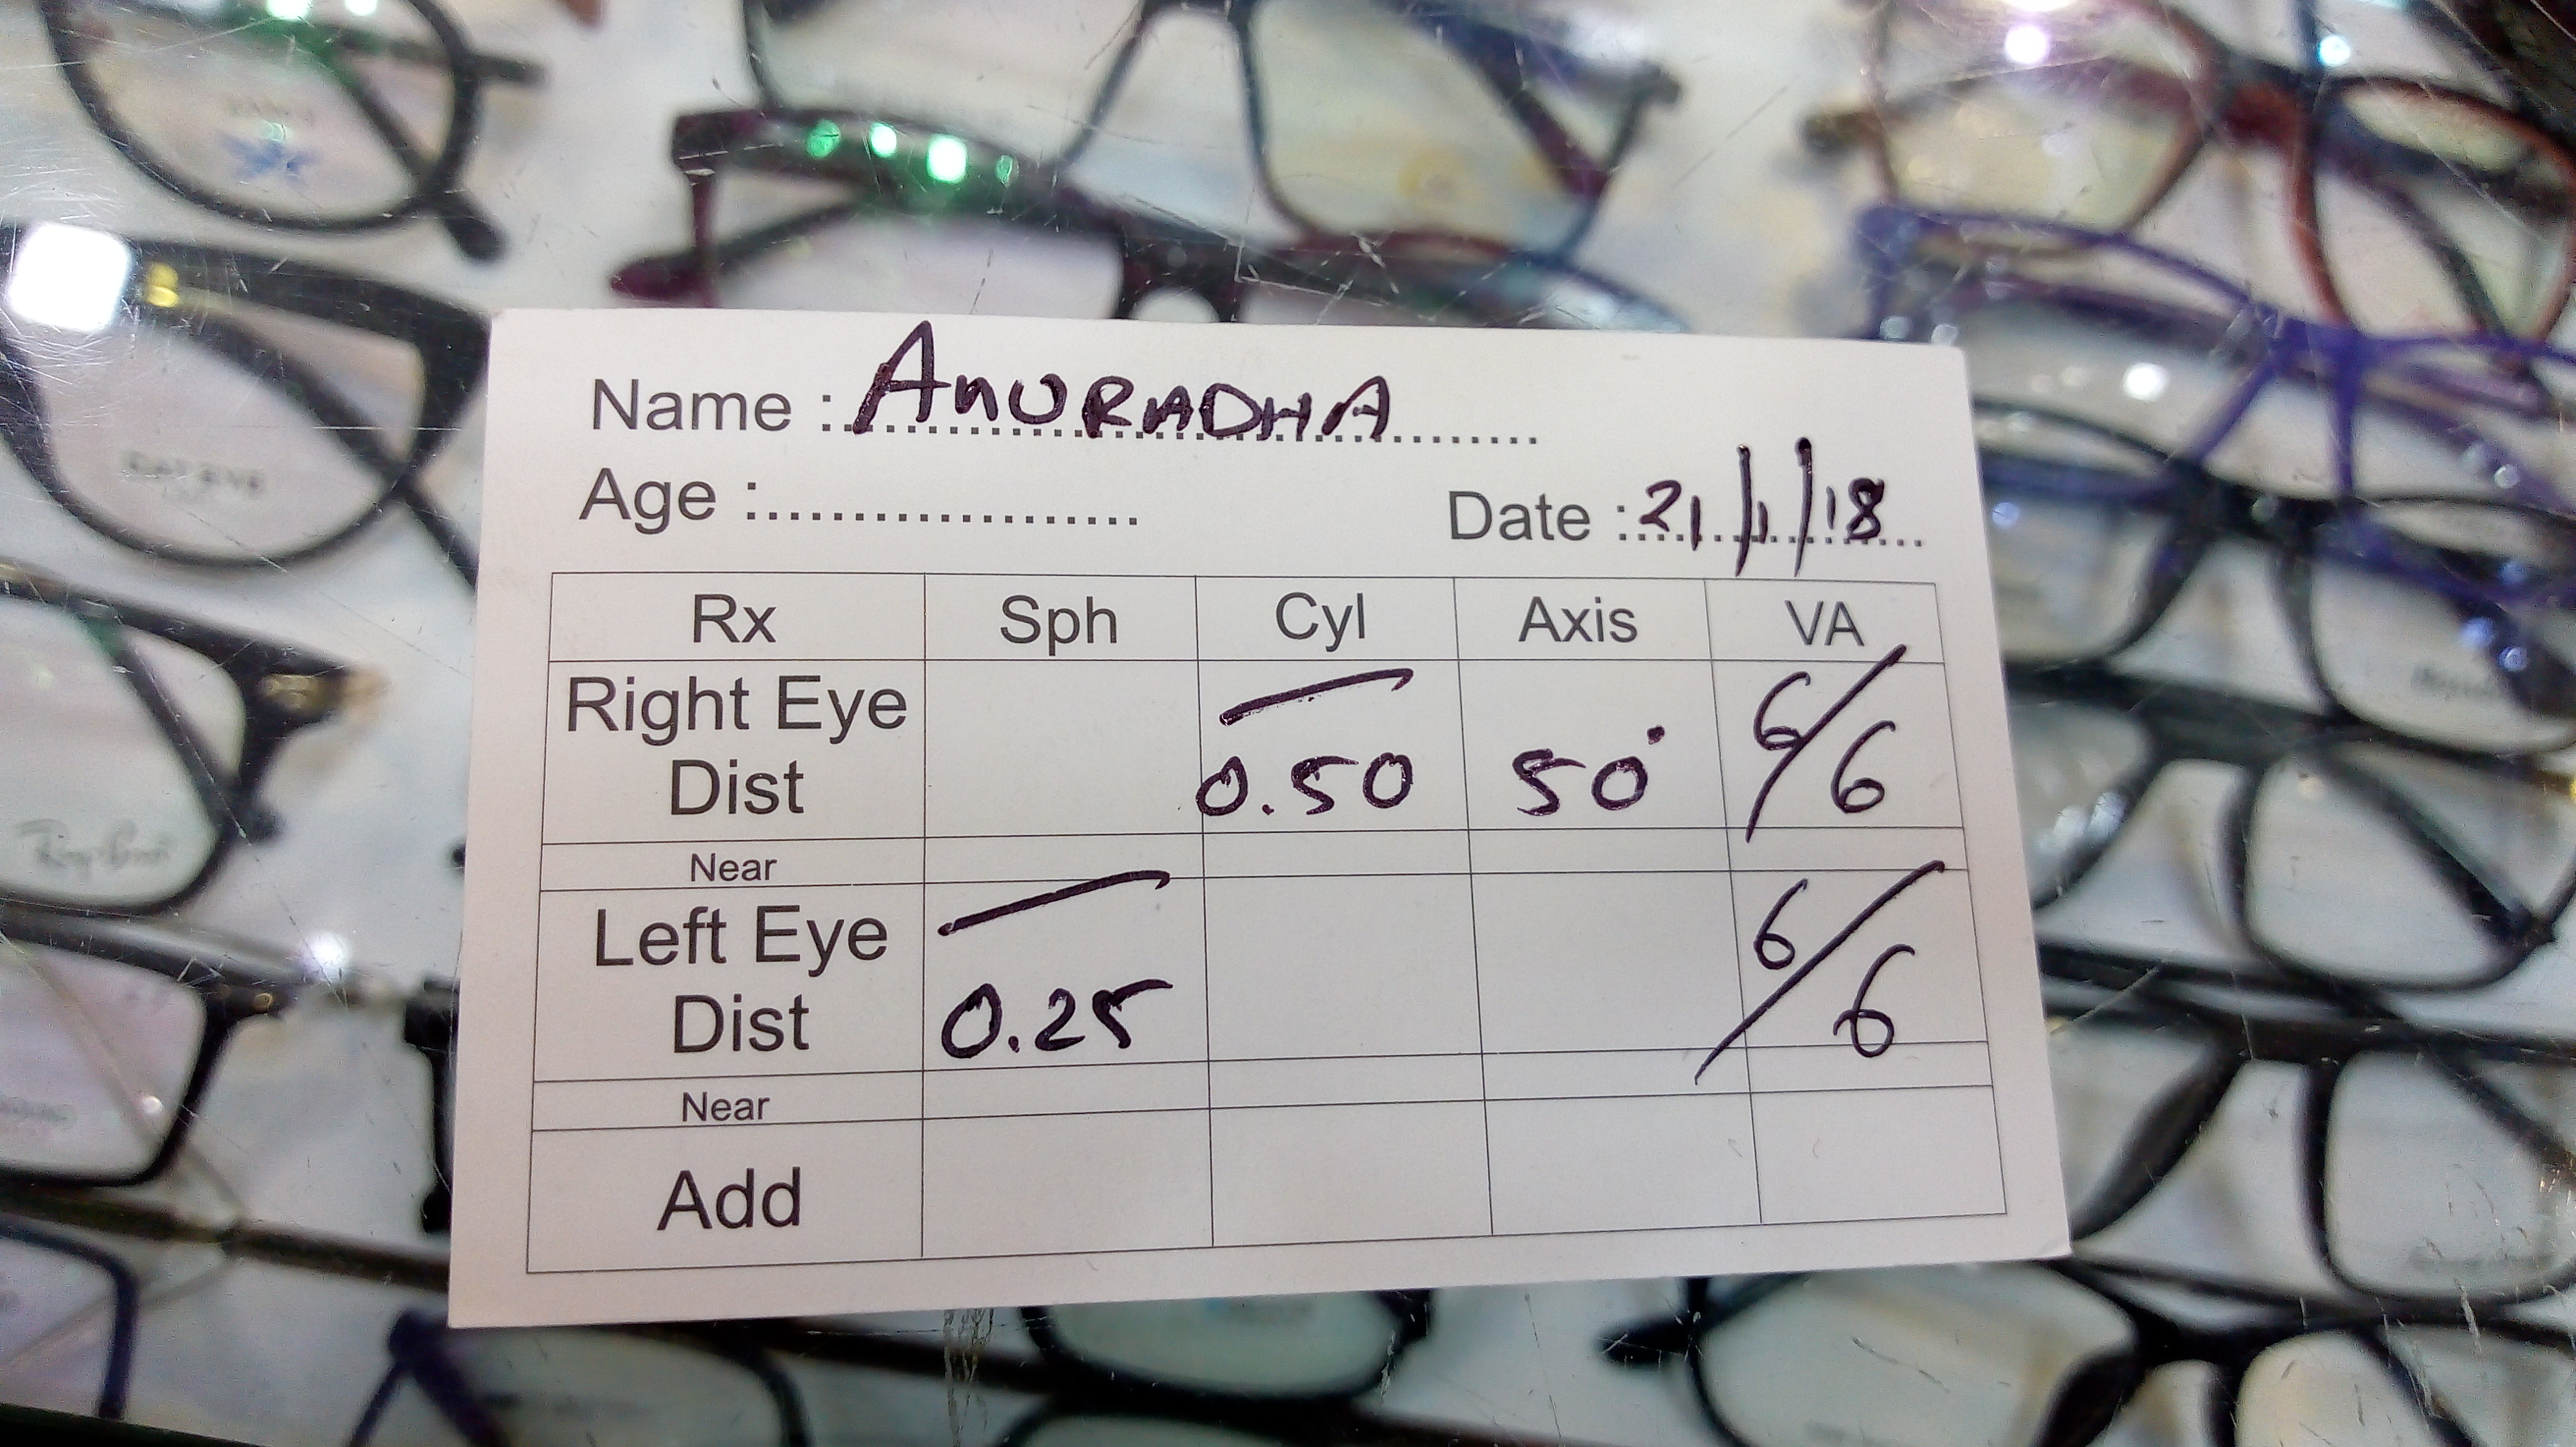 Name : ANURADHA
Age :
Date : 21/1/18
Rx Sph Cyl Axis VA
Right Eye Dist — 0.50 50° 6/6
Near
Left Eye Dist — 0.25 6/6
Near
Add
Ray-Ban